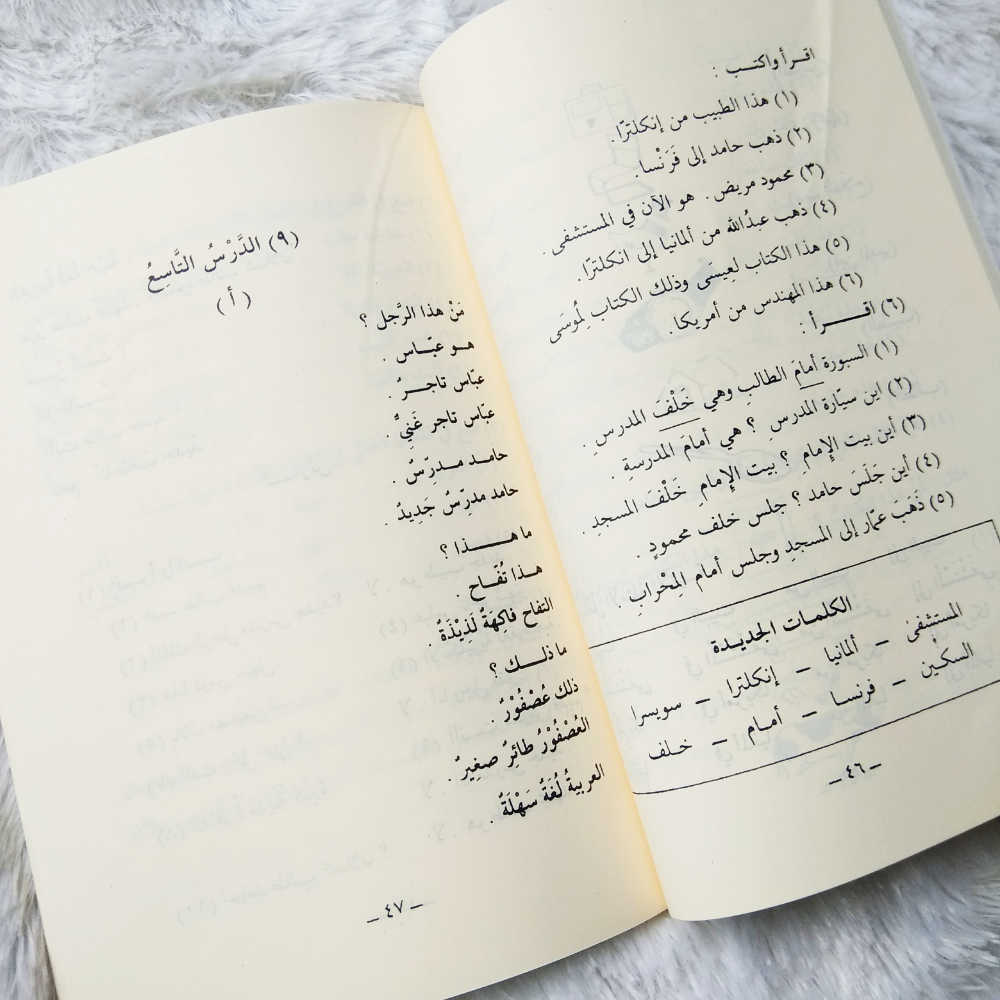 اقــرأ واكتــب :
(١) هذا الطبيب من إنكلترّا.
(٢) ذهب حامد إلى فَرَنْسا.
(٣) محمود مريض. هو الآن في المستشفى .
(٤) ذهب عبدُالله من ألمانيا إلى انكلترّا.
(٥) هذا الكتاب لِعِيسَى وذلك الكتاب لِمُوسَى
(٦) هذا المهندس من أمريكا.
(٦) اقــــرأ :
(١) السبورة أمامَ الطالبِ وهي خَلْفَ المدرسِ .
(٢) اين سيّارة المدرسِ ؟ هي أمامَ المدرسةِ .
(٣) أين بيت الإمامِ ؟ بيت الإمامِ خَلْفَ المسجدِ .
(٤) أين جَلَسَ حامد ؟ جلس خلف محمودٍ .
(٥) ذَهَبَ عمّار إلى المسجدِ وجلس أمام المِحْرابِ .
الكلمـات الجديـدة
المستشفىٰ – ألمانيا – إنكلترا – سويسرا
السكين – فرنسا – أمـام – خـلف
– ٤٦ –
(٩) الدَّرْسُ التَّاسِعُ
( أ )
مَنْ هذا الرَّجل ؟
هـو عبّـاس .
عبّاس تاجـرٌ .
عبّاس تاجر غَنِيٌّ .
حامـد مـدرّسٌ .
حامد مدرّسٌ جَدِيدٌ .
ما هـــذا ؟
هـذا تُفّـاح .
التفاح فاكِهَةٌ لَذِيْذَةٌ.
ما ذلـــك ؟
ذلك عُصْفُوْرٌ .
العُصْفُوْرُ طائِرٌ صغِيرٌ .
العربيةُ لُغَةٌ سَهْلَةٌ .
– ٤٧ –